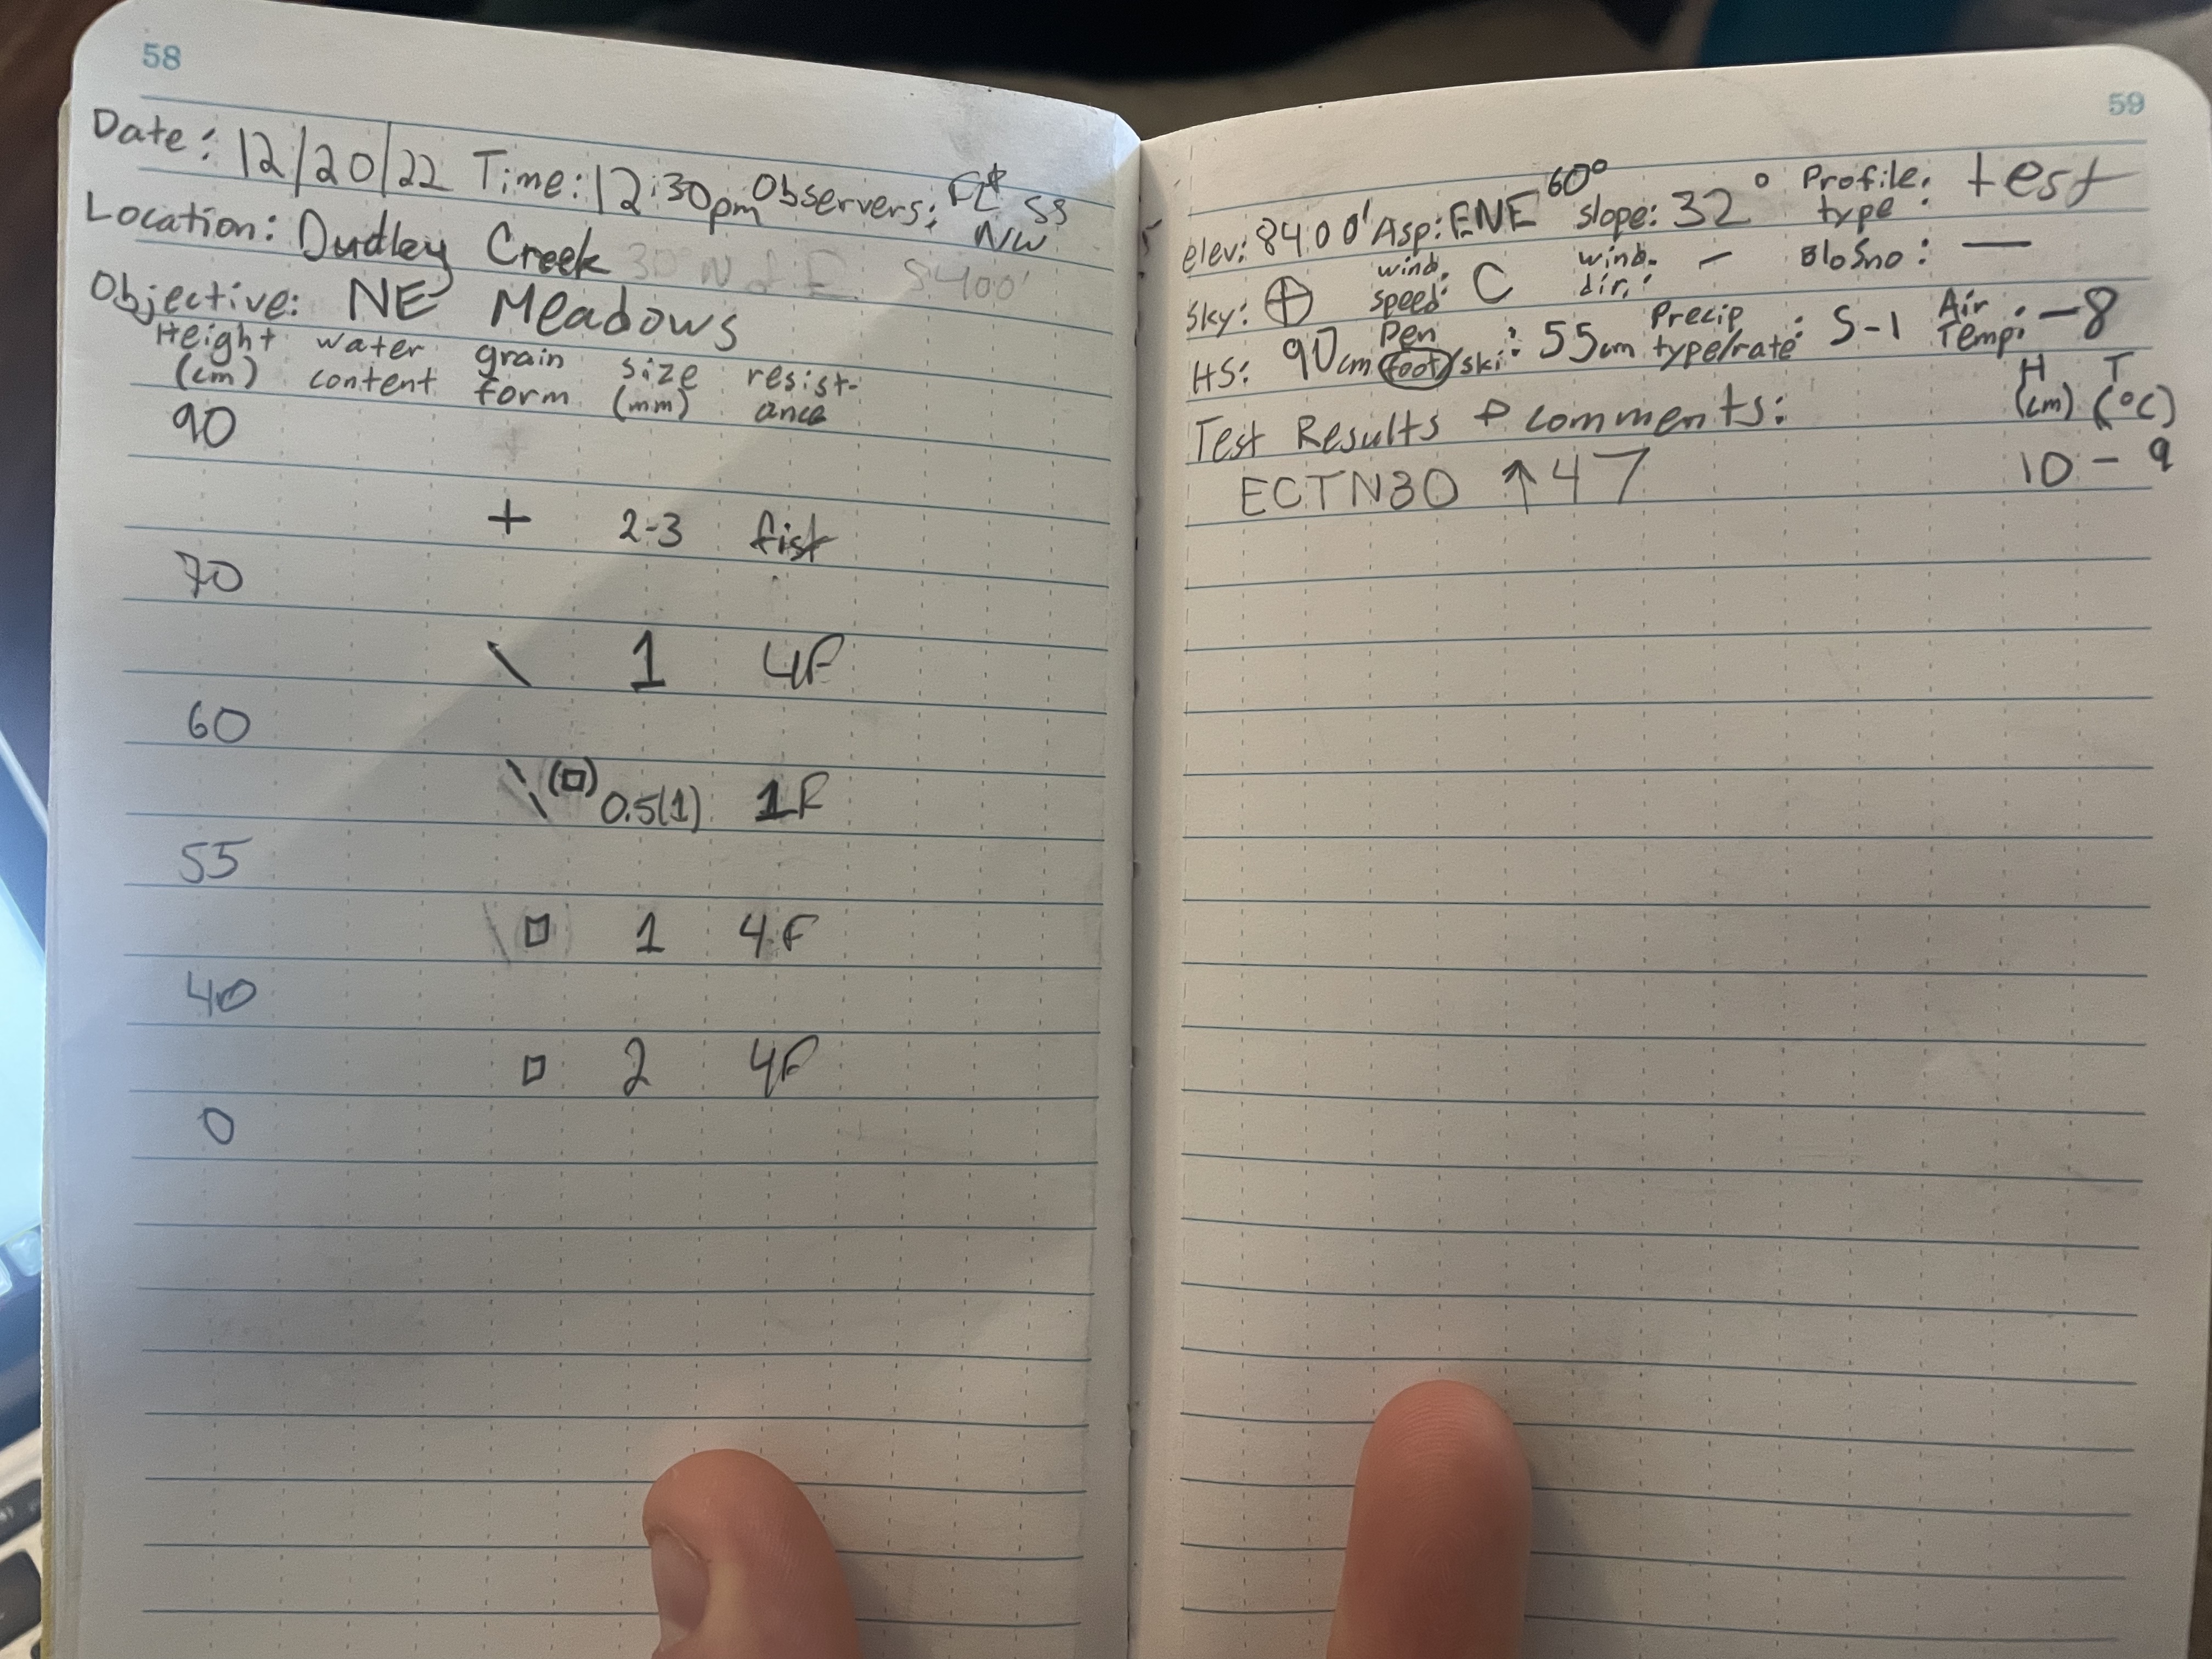 58
Date: 12/20/22 Time: 12:30pm Observers: SS
NW
Location: Dudley Creek
Objective: NE Meadows
Height (cm) water content grain form size (mm) resist-ance
90
+ 2-3 fist
70
\ 1 4F
60
\ (□) 0.5(1) 1F
55
□ 1 4F
40
□ 2 4F
0
59
elev: 8400' Asp: ENE 60° slope: 32° Profile type: test
Sky: ⊕ wind speed: C wind dir.: – BloSno: —
HS: 90cm Pen foot/ski: 55cm Precip type/rate: S-1 Air Temp: -8
Test Results + comments: H (cm) T (°C)
ECTN30 ↑47 10 - 9